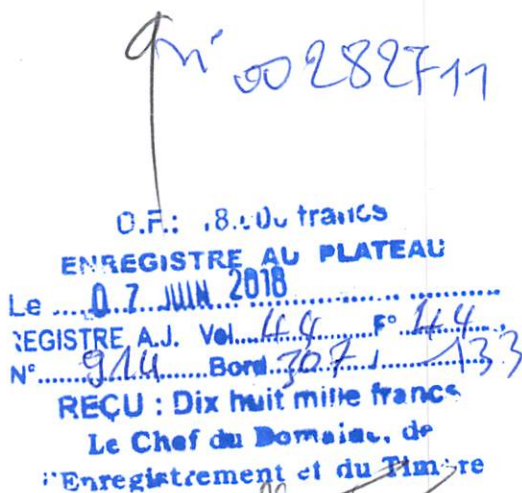 N° 00282711
D.F.: 18.000 francs
ENREGISTRE AU PLATEAU
Le ....0.7. JUIN. 2018..................
REGISTRE A.J. Vol....44......... F°..44....
N°.......914....... Bord..307..../......133
REÇU : Dix huit mille francs
Le Chef du Domaine, de
l'Enregistrement et du Timbre